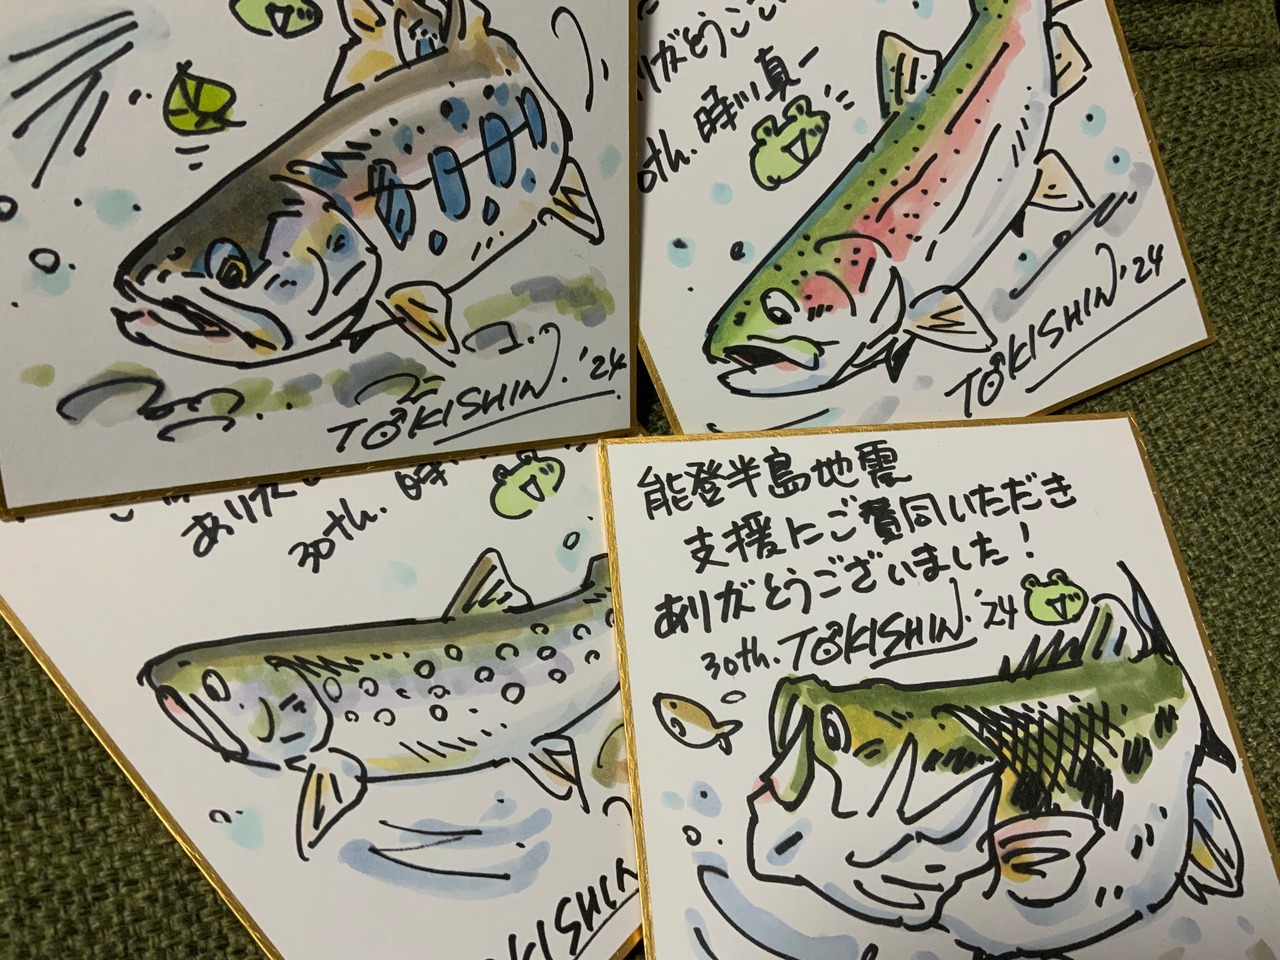 TOKISHIN.'24
ありがとうござ
0th. 時川真一
TOKISHIN'24
ありが
30th. 時川
OKISHIN
能登半島地震
支援にご賛同いただき
ありがとうございました!
30th. TOKISHIN.'24